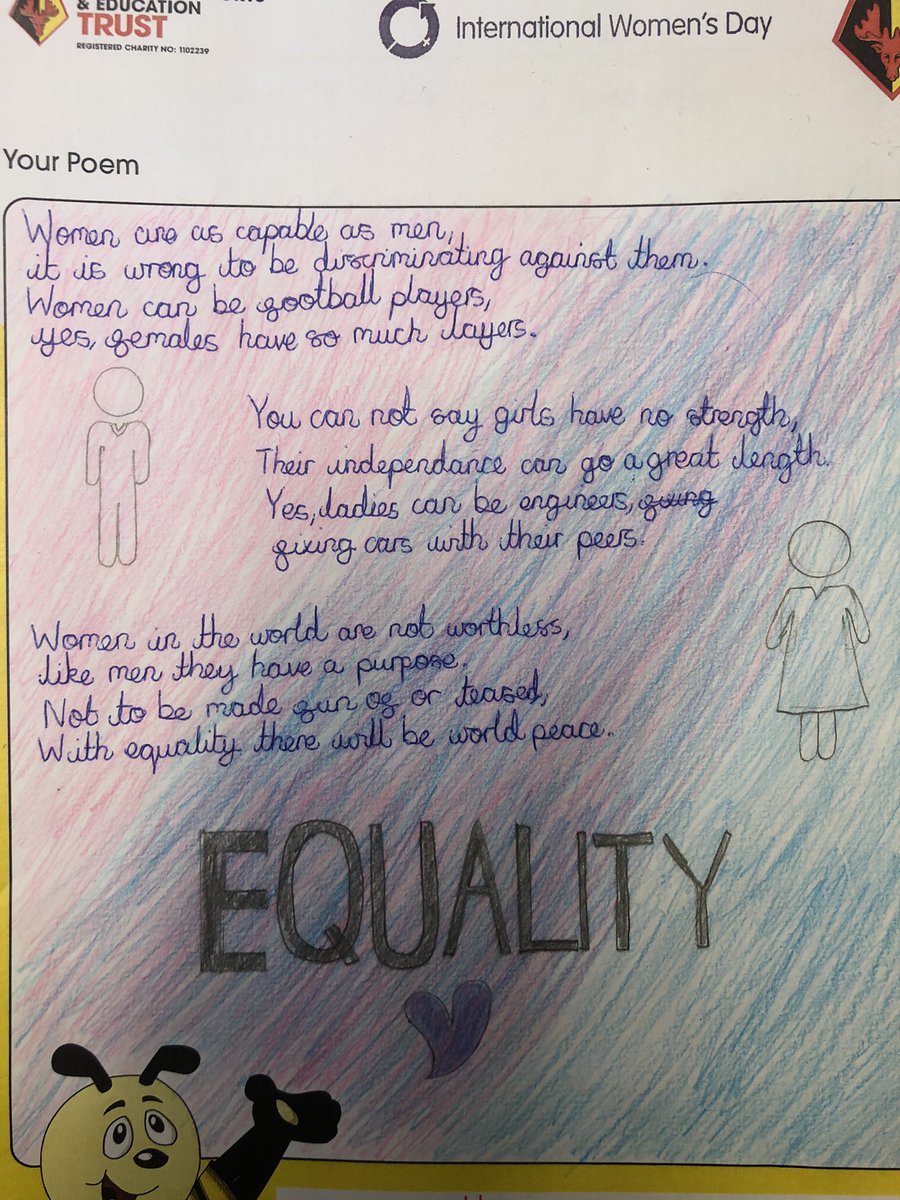 & EDUCATION
TRUST
REGISTERED CHARITY NO: 1102239
International Women's Day
Your Poem
Women are as capable as men,
it is wrong to be discriminating against them.
Women can be football players,
yes, females have so much layers.
You can not say girls have no strength,
Their independance can go a great length.
Yes, ladies can be engineers,
fixing cars with their peers.
Women in the world are not worthless,
like men they have a purpose.
Not to be made fun of or teased,
With equality there will be world peace.
EQUALITY